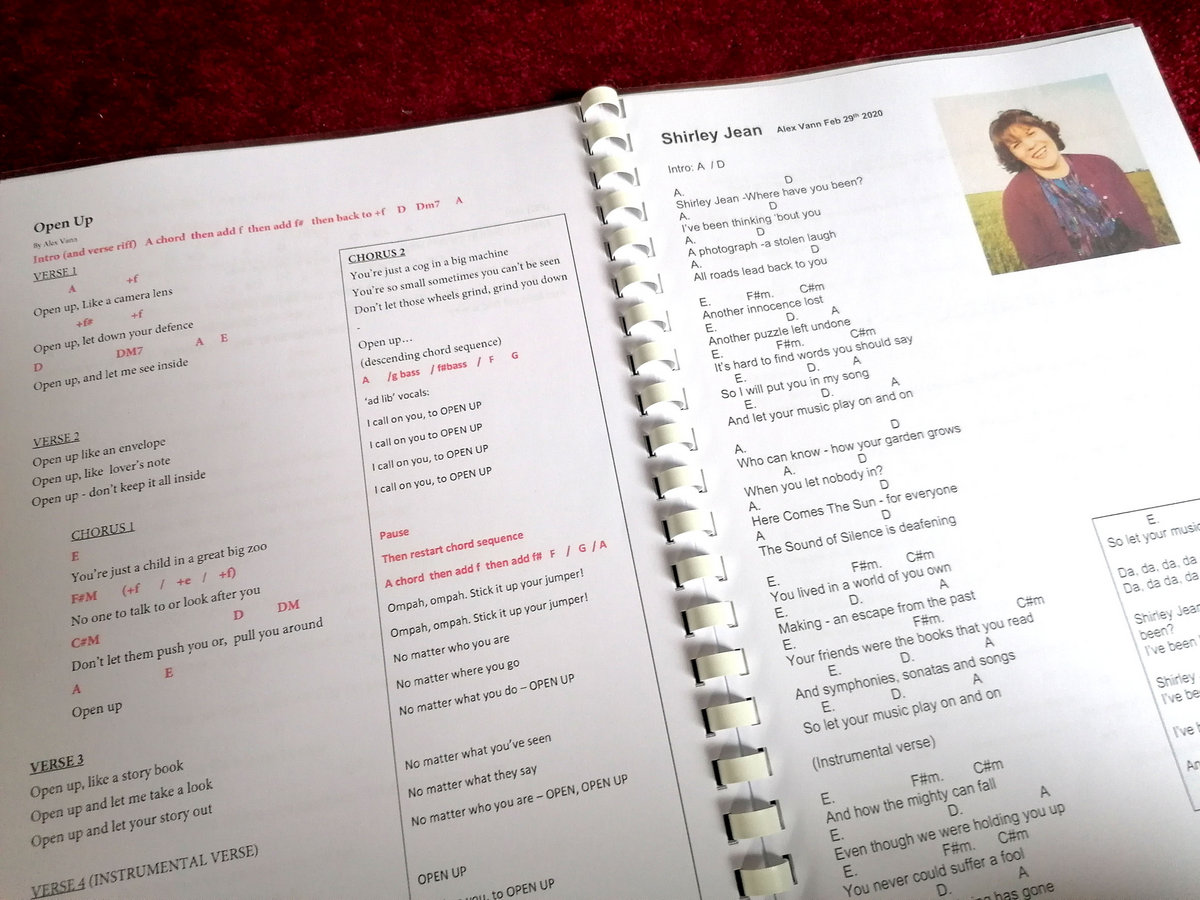 Open Up
By Alex Vann
Intro (and verse riff) A chord then add f then add f# then back to +f D Dm7 A
VERSE 1
A +f
Open up, Like a camera lens
+f# +f
Open up, let down your defence
D DM7 A E
Open up, and let me see inside
VERSE 2
Open up like an envelope
Open up, like lover's note
Open up - don't keep it all inside
CHORUS 1
E
You're just a child in a great big zoo
F#M (+f / +e / +f)
No one to talk to or look after you
C#M D DM
Don't let them push you or, pull you around
A E
Open up
VERSE 3
Open up, like a story book
Open up and let me take a look
Open up and let your story out
VERSE 4 (INSTRUMENTAL VERSE)
CHORUS 2
You're just a cog in a big machine
You're so small sometimes you can't be seen
Don't let those wheels grind, grind you down
-
Open up…
(descending chord sequence)
A /g bass / f#bass / F G
'ad lib' vocals:
I call on you, to OPEN UP
I call on you to OPEN UP
I call on you, to OPEN UP
I call on you, to OPEN UP
Pause
Then restart chord sequence
A chord then add f then add f# F / G / A
Ompah, ompah. Stick it up your jumper!
Ompah, ompah. Stick it up your jumper!
No matter who you are
No matter where you go
No matter what you do – OPEN UP
No matter what you've seen
No matter what they say
No matter who you are – OPEN, OPEN UP
OPEN UP
you, to OPEN UP
Shirley Jean Alex Vann Feb 29th 2020
Intro: A / D
A. D
Shirley Jean -Where have you been?
A. D
I've been thinking 'bout you
A. D
A photograph -a stolen laugh
A. D
All roads lead back to you
E. F#m. C#m
Another innocence lost
E. D. A
Another puzzle left undone
E. F#m. C#m
It's hard to find words you should say
E. D. A
So I will put you in my song
E. D. A
And let your music play on and on
A. D
Who can know - how your garden grows
A. D
When you let nobody in?
A. D
Here Comes The Sun - for everyone
A D
The Sound of Silence is deafening
E. F#m. C#m
You lived in a world of you own
E. D. A
Making - an escape from the past
E. F#m. C#m
Your friends were the books that you read
E. D. A
And symphonies, sonatas and songs
E. D. A
So let your music play on and on
(Instrumental verse)
E. F#m. C#m
And how the mighty can fall
E. D. A
Even though we were holding you up
E. F#m. C#m
You never could suffer a fool
D. A
has gone
E.
So let your music
Da, da, da, da
Da, da da, da
Shirley Jean
been?
I've been
Shirley
I've be